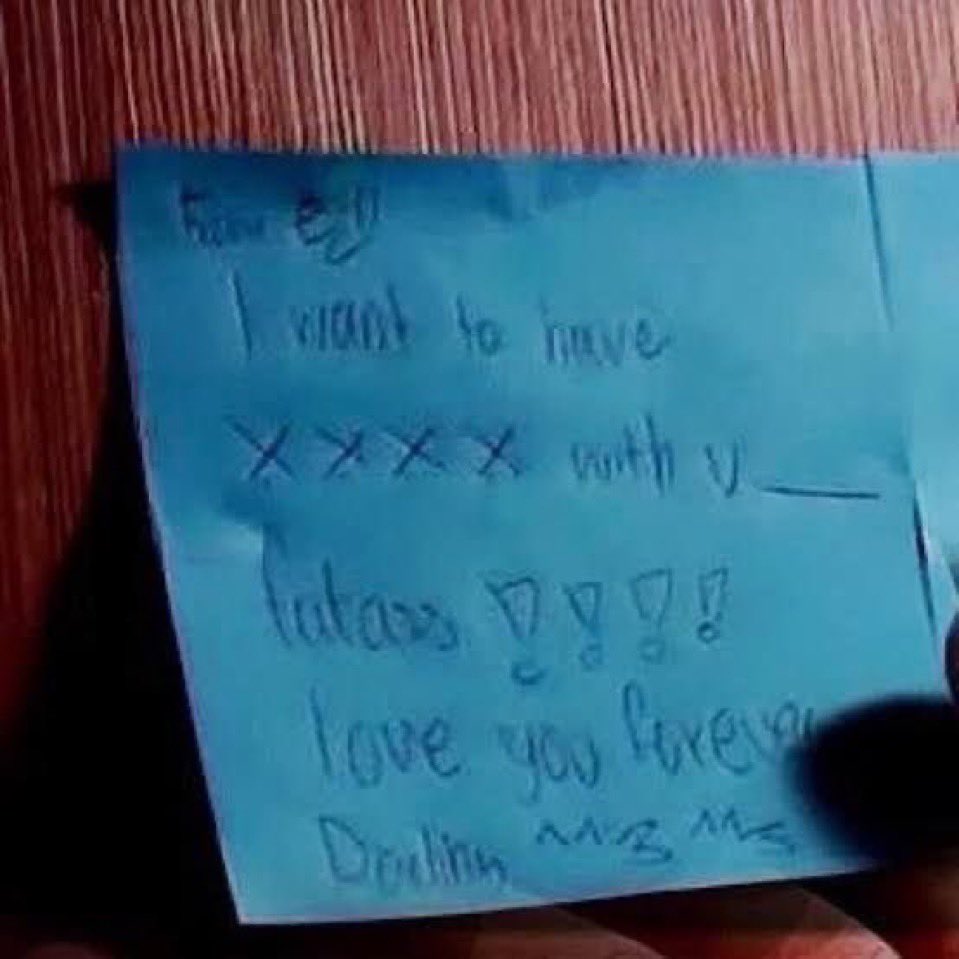 From
I want to have
XXXX with u __
fatass !!!!
love you forever
Darling ^^3 ^^3